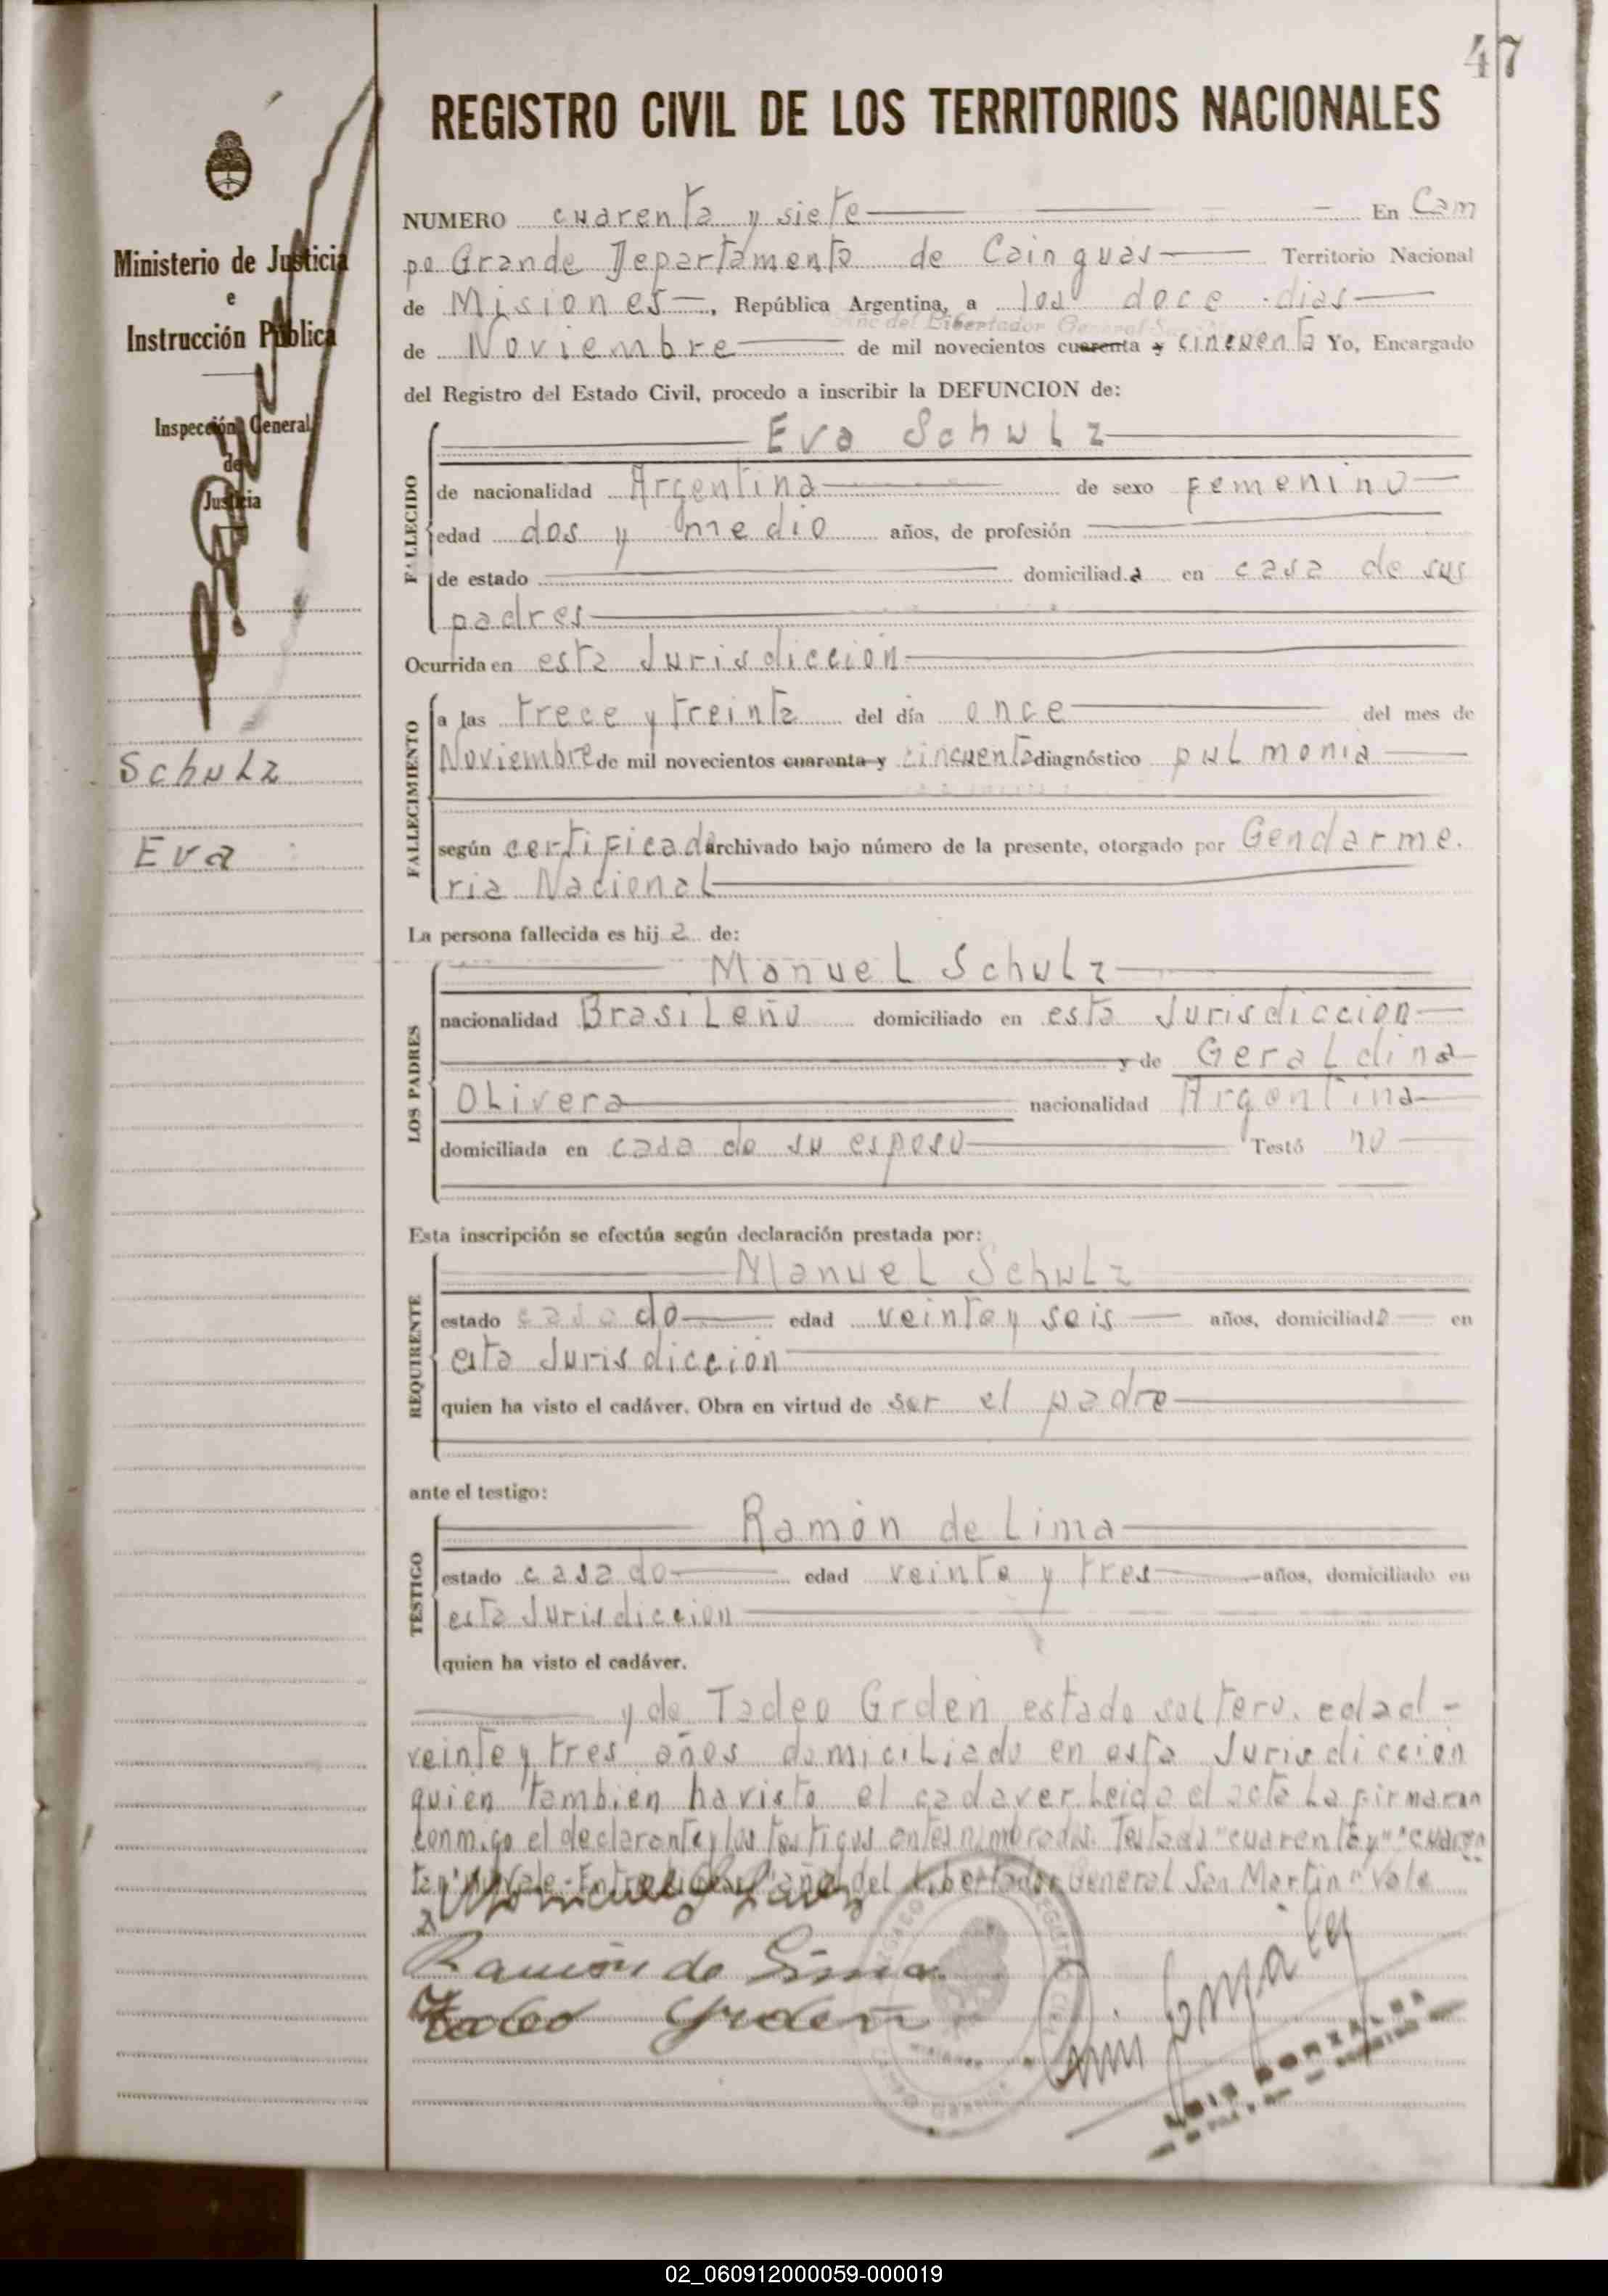 47
REGISTRO CIVIL DE LOS TERRITORIOS NACIONALES
Ministerio de Justicia
e
Instrucción Pública
Inspección General
de
Justicia
Schulz
Eva
NUMERO cuarenta y siete En Cam
po Grande Departamento de Cainguás Territorio Nacional
de Misiones, República Argentina, a los doce dias
Año del Libertador General San
de Noviembre de mil novecientos cuarenta y cincuenta Yo, Encargado
del Registro del Estado Civil, procedo a inscribir la DEFUNCION de:
FALLECIDO
Eva Schulz
de nacionalidad Argentina de sexo femenino
edad dos y medio años, de profesión
de estado domiciliad.a en casa de sus
padres
Ocurrida en esta Jurisdiccion
FALLECIMIENTO
a las trece y treinta del día once del mes de
Noviembre de mil novecientos cuarenta y cincuenta diagnóstico pulmonia
según certificado archivado bajo número de la presente, otorgado por Gendarme.
ria Nacional
La persona fallecida es hij a de:
LOS PADRES
Manuel Schulz
nacionalidad Brasileño domiciliado en esta Jurisdiccion
y de Geraldina
Olivera nacionalidad Argentina
domiciliada en casa de su esposo Testó no
Esta inscripción se efectúa según declaración prestada por:
REQUIRENTE
Manuel Schulz
estado casado edad veinte y seis años, domiciliado en
esta Jurisdiccion
quien ha visto el cadáver. Obra en virtud de ser el padre
ante el testigo:
TESTIGO
Ramón de Lima
estado casado edad veinte y tres años, domiciliado en
esta Jurisdiccion
quien ha visto el cadáver.
y de Tadeo Grden estado soltero. edad -
veinte y tres años domiciliado en esta Jurisdiccion
quien tambien ha visto el cadaver Leida el acta La firmaran
conmigo el declarante y los testigos antes nombrados. Testado "cuarenta y" "cuaren
ta y" no Vale - Entre "año del Libertador General San Martin" Vale
Ramón de Lima
Tadeo Grden
02_060912000059-000019